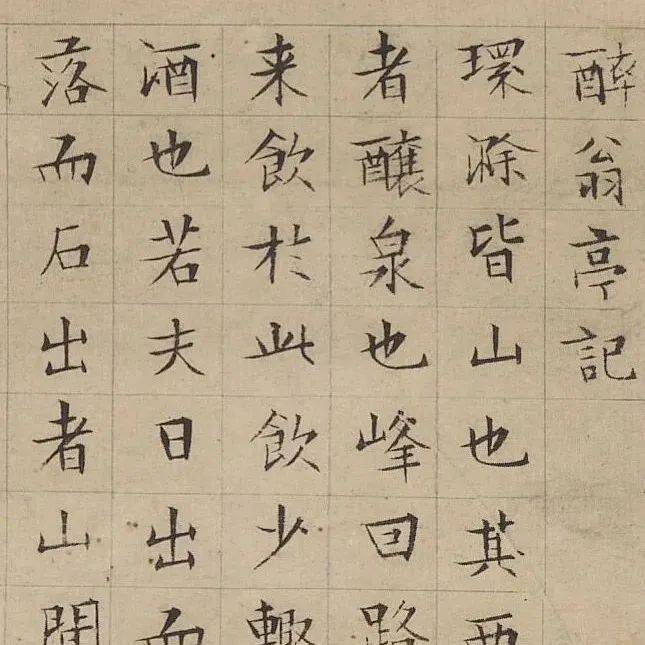 醉翁亭記
環滁皆山也其西
者釀泉也峰回路
来飲於此飲少輒
酒也若夫日出而
落而石出者山間